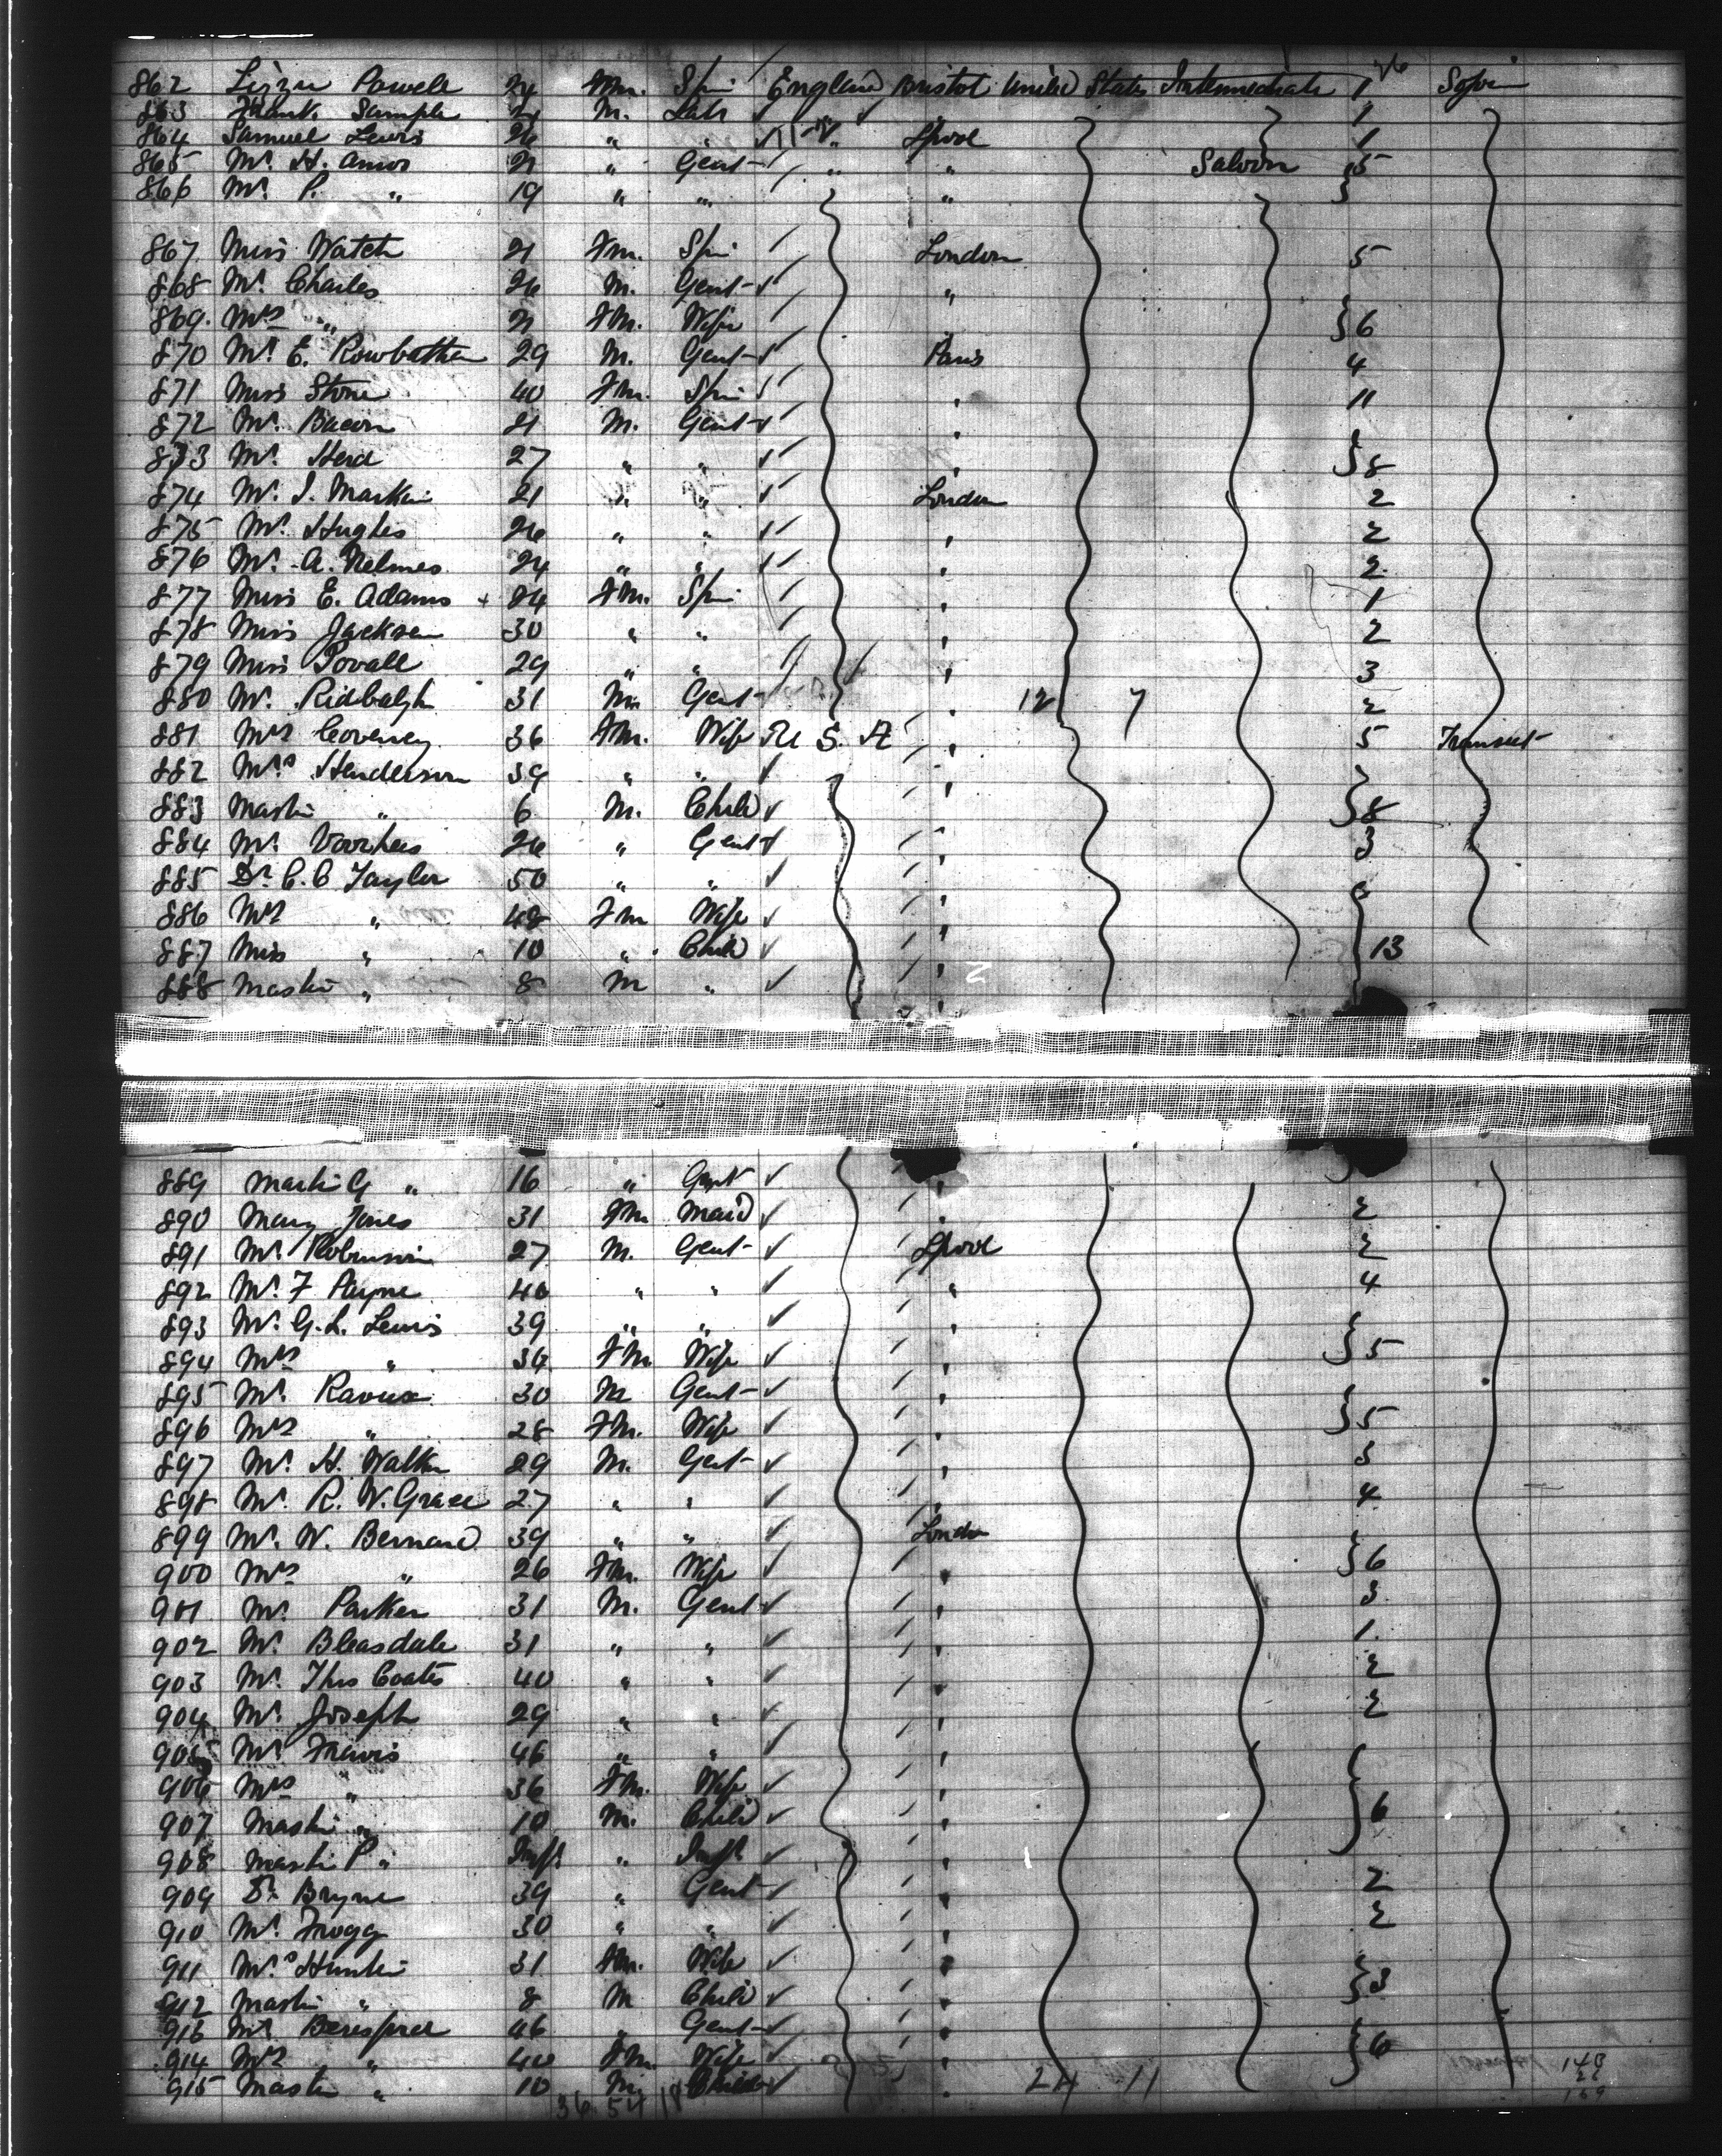 862 Lizzie Powell 24 Fm. Spin England Bristol United States Intermediate 1 Sojour
863 Frank Sample 21 M. Labr 1
864 Samuel Lewis 26 " " L'pool 1
865 Mr. H. Amos 21 " Gent " " Saloon 5
866 Mr. P. " 19 " " "
867 Miss Watch 21 Fm. Spin London 5
868 Mr. Charles 26 M. Gent "
869 Mrs " 21 Fm. Wife 6
870 Mr. E. Rowbotham 29 M. Gent Paris 4
871 Miss Stone 40 Fm. Spin " 11
872 Mr. Bacon 21 M. Gent "
873 Mr. Herd 27 " " " 8
874 Mr. J. Markin 21 " " London 2
875 Mr. Hughes 26 " " " 2
876 Mr. A. Nelmes 24 " " " 2
877 Miss E. Adams + 24 Fm. Spin " 1
878 Miss Jackson 30 " " " 2
879 Miss Povall 29 " " " 3
880 Mr. 31 M. Gent " 12 7 2
881 Mrs Coveney 36 Fm. Wife U. S. A " 5 Transit
882 Mrs. Henderson 39 " " "
883 Master " 6 M. Child " 8
884 Mr. Voorhees 26 " Gent " 3
885 Dr. C. C Taylor 50 " " "
886 Mrs " 48 Fm Wife "
887 Miss " 10 " Child " 13
888 Master " 8 M " "
889 Master G " 16 " Gent "
890 Mary Jones 31 Fm Maid " 2
891 Mr. Robinson 27 M. Gent L'pool 2
892 Mr. F Payne 40 " " " 4
893 Mr. G. L. Lewis 39 " " "
894 Mrs " 36 Fm. Wife " 5
895 Mr. 30 M Gent "
896 Mrs " 28 Fm. Wife " 5
897 Mr. H. Walker 29 M. Gent " 3
898 Mr. R. W. Grace 27 " " " 4
899 Mr. W. Bernard 39 " " London
900 Mrs " 26 Fm. Wife " 6
901 Mr. Parker 31 M. Gent " 3
902 Mr. Bleasdale 31 " " " 1
903 Mr. Thos Coates 40 " " " 2
904 Mr. Joseph 29 " " " 2
905 Mr. Travis 46 " " "
906 Mrs " 36 Fm. Wife "
907 Master " 10 M. Child " 6
908 Master P " Inft. " Inft "
909 Dr. Bryne 39 " Gent " 2
910 Mr. Frogg 30 " " " 2
911 Mrs. Hunter 31 Fm. Wife "
912 Master " 8 M Child " 3
913 Mr. 46 " Gent "
914 Mrs " 40 Fm. Wife " 6
915 Master " 10 M. Child " 24 11
36 54 18